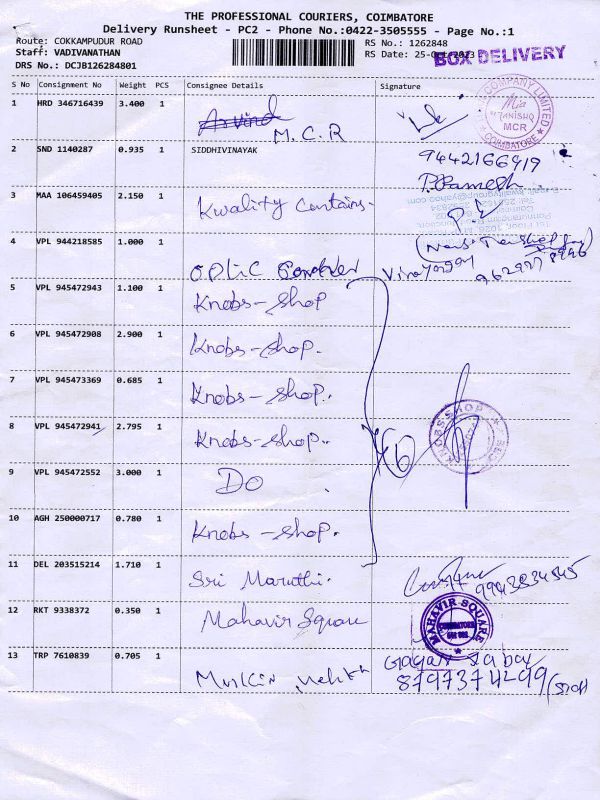 THE PROFESSIONAL COURIERS, COIMBATORE
Delivery Runsheet - PC2 - Phone No.:0422-3505555 - Page No.:1
Route: COKKAMPUDUR ROAD
Staff: VADIVANATHAN
DRS No.: DCJB126284801
RS No.: 1262848
RS Date: 25-Oct-2023
BOX DELIVERY
S No Consignment No Weight PCS Consignee Details Signature
1 HRD 346716439 3.400 1 Arvind M.C.R
COMPANY LIMITED
TANISHQ
MCR
COIMBATORE
2 SND 1140287 0.935 1 SIDDHIVINAYAK 9442166419
P. Ramesh
3 MAA 106459405 2.150 1 Kwality Curtains.
4 VPL 944218585 1.000 1 OPtic
Vinayagam
962927 8946
5 VPL 945472943 1.100 1 Knobs - shop
6 VPL 945472908 2.900 1 Knobs - shop.
7 VPL 945473369 0.685 1 Knobs - shop.
8 VPL 945472941 2.795 1 Knobs - shop.
KNOBSSHOP
9 VPL 945472552 3.000 1 DO
10 AGH 250000717 0.780 1 Knobs - shop.
11 DEL 203515214 1.710 1 Sri Maruthi.
9943834545
12 RKT 9338372 0.350 1 Mahavir Square
MAHAVIR SQUARE
COIMBATORE
13 TRP 7610839 0.705 1 Mehta
Gagan
8797374299